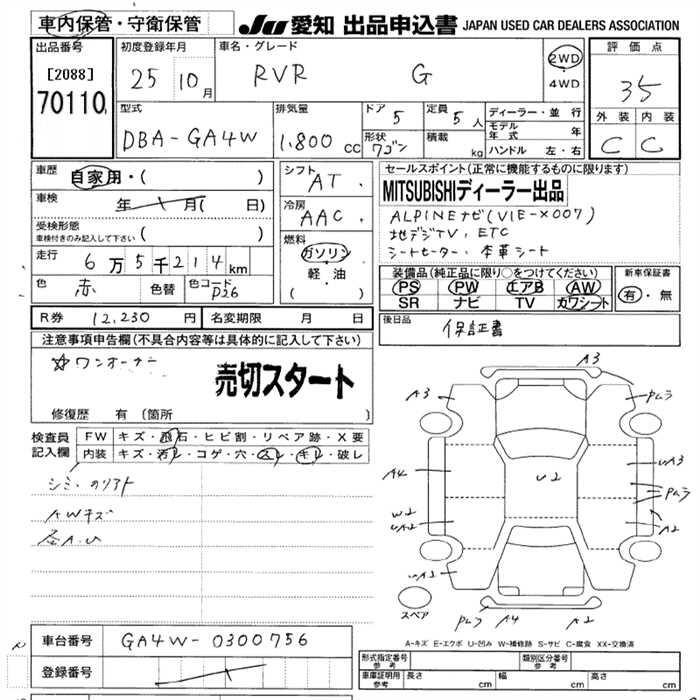 車内保管・守衛保管 JU 愛知 出品申込書 JAPAN USED CAR DEALERS ASSOCIATION
出品番号 初度登録年月 車名・グレード 評価点
[2088] 25 10月 RVR G 2WD・4WD 35
70110
型式 排気量 ドア 5 定員 5人 ディーラー・並行 外装 内装
DBA-GA4W 1.800cc 形状 ワゴン 積載 kg モデル年式 年 C C
ハンドル 左・右
車歴 自家用・( ) シフト AT. セールスポイント(正常に機能するものに限ります)
車検 年 月( 日) 冷房 AAC. MITSUBISHIディーラー出品
受検形態 ( ) ALPINEナビ(VIE-X007)
車検付きのみ記入して下さい 燃料 地デジTV. ETC
走行 6万5千214km ガソリン・軽・油 ( ) シートヒーター. 本革シート
色 赤 色替 色コード P26 装備品(純正品に限り○をつけてください) 新車保証書
PS PW エアB AW 有・無
SR ナビ TV カワシート
R券 12,230円 名変期限 月 日 後日品 保証書
注意事項申告欄(不具合内容等は具体的に記入して下さい)
☆ワンオーナー
売切スタート
修復歴 有(箇所 )
検査員記入欄 FW キズ・飛石・ヒビ割・リペア跡・X要
内装 キズ・汚レ・コゲ・穴・スレ・キレ・破レ
AWキズ
A3
A3 Pムラ
A4 U2 UA3
Pムラ
W2 UA2 A2
UA2
スペア Pムラ A4 A2
A-キズ E-エクボ U-凹み W-補修跡 S-サビ C-腐食 XX-交換済
車台番号 GA4W-0300756
登録番号
型式指定番号 参考 類別区分番号 参考
車庫証明用 参考 長さ cm 幅 cm 高さ cm